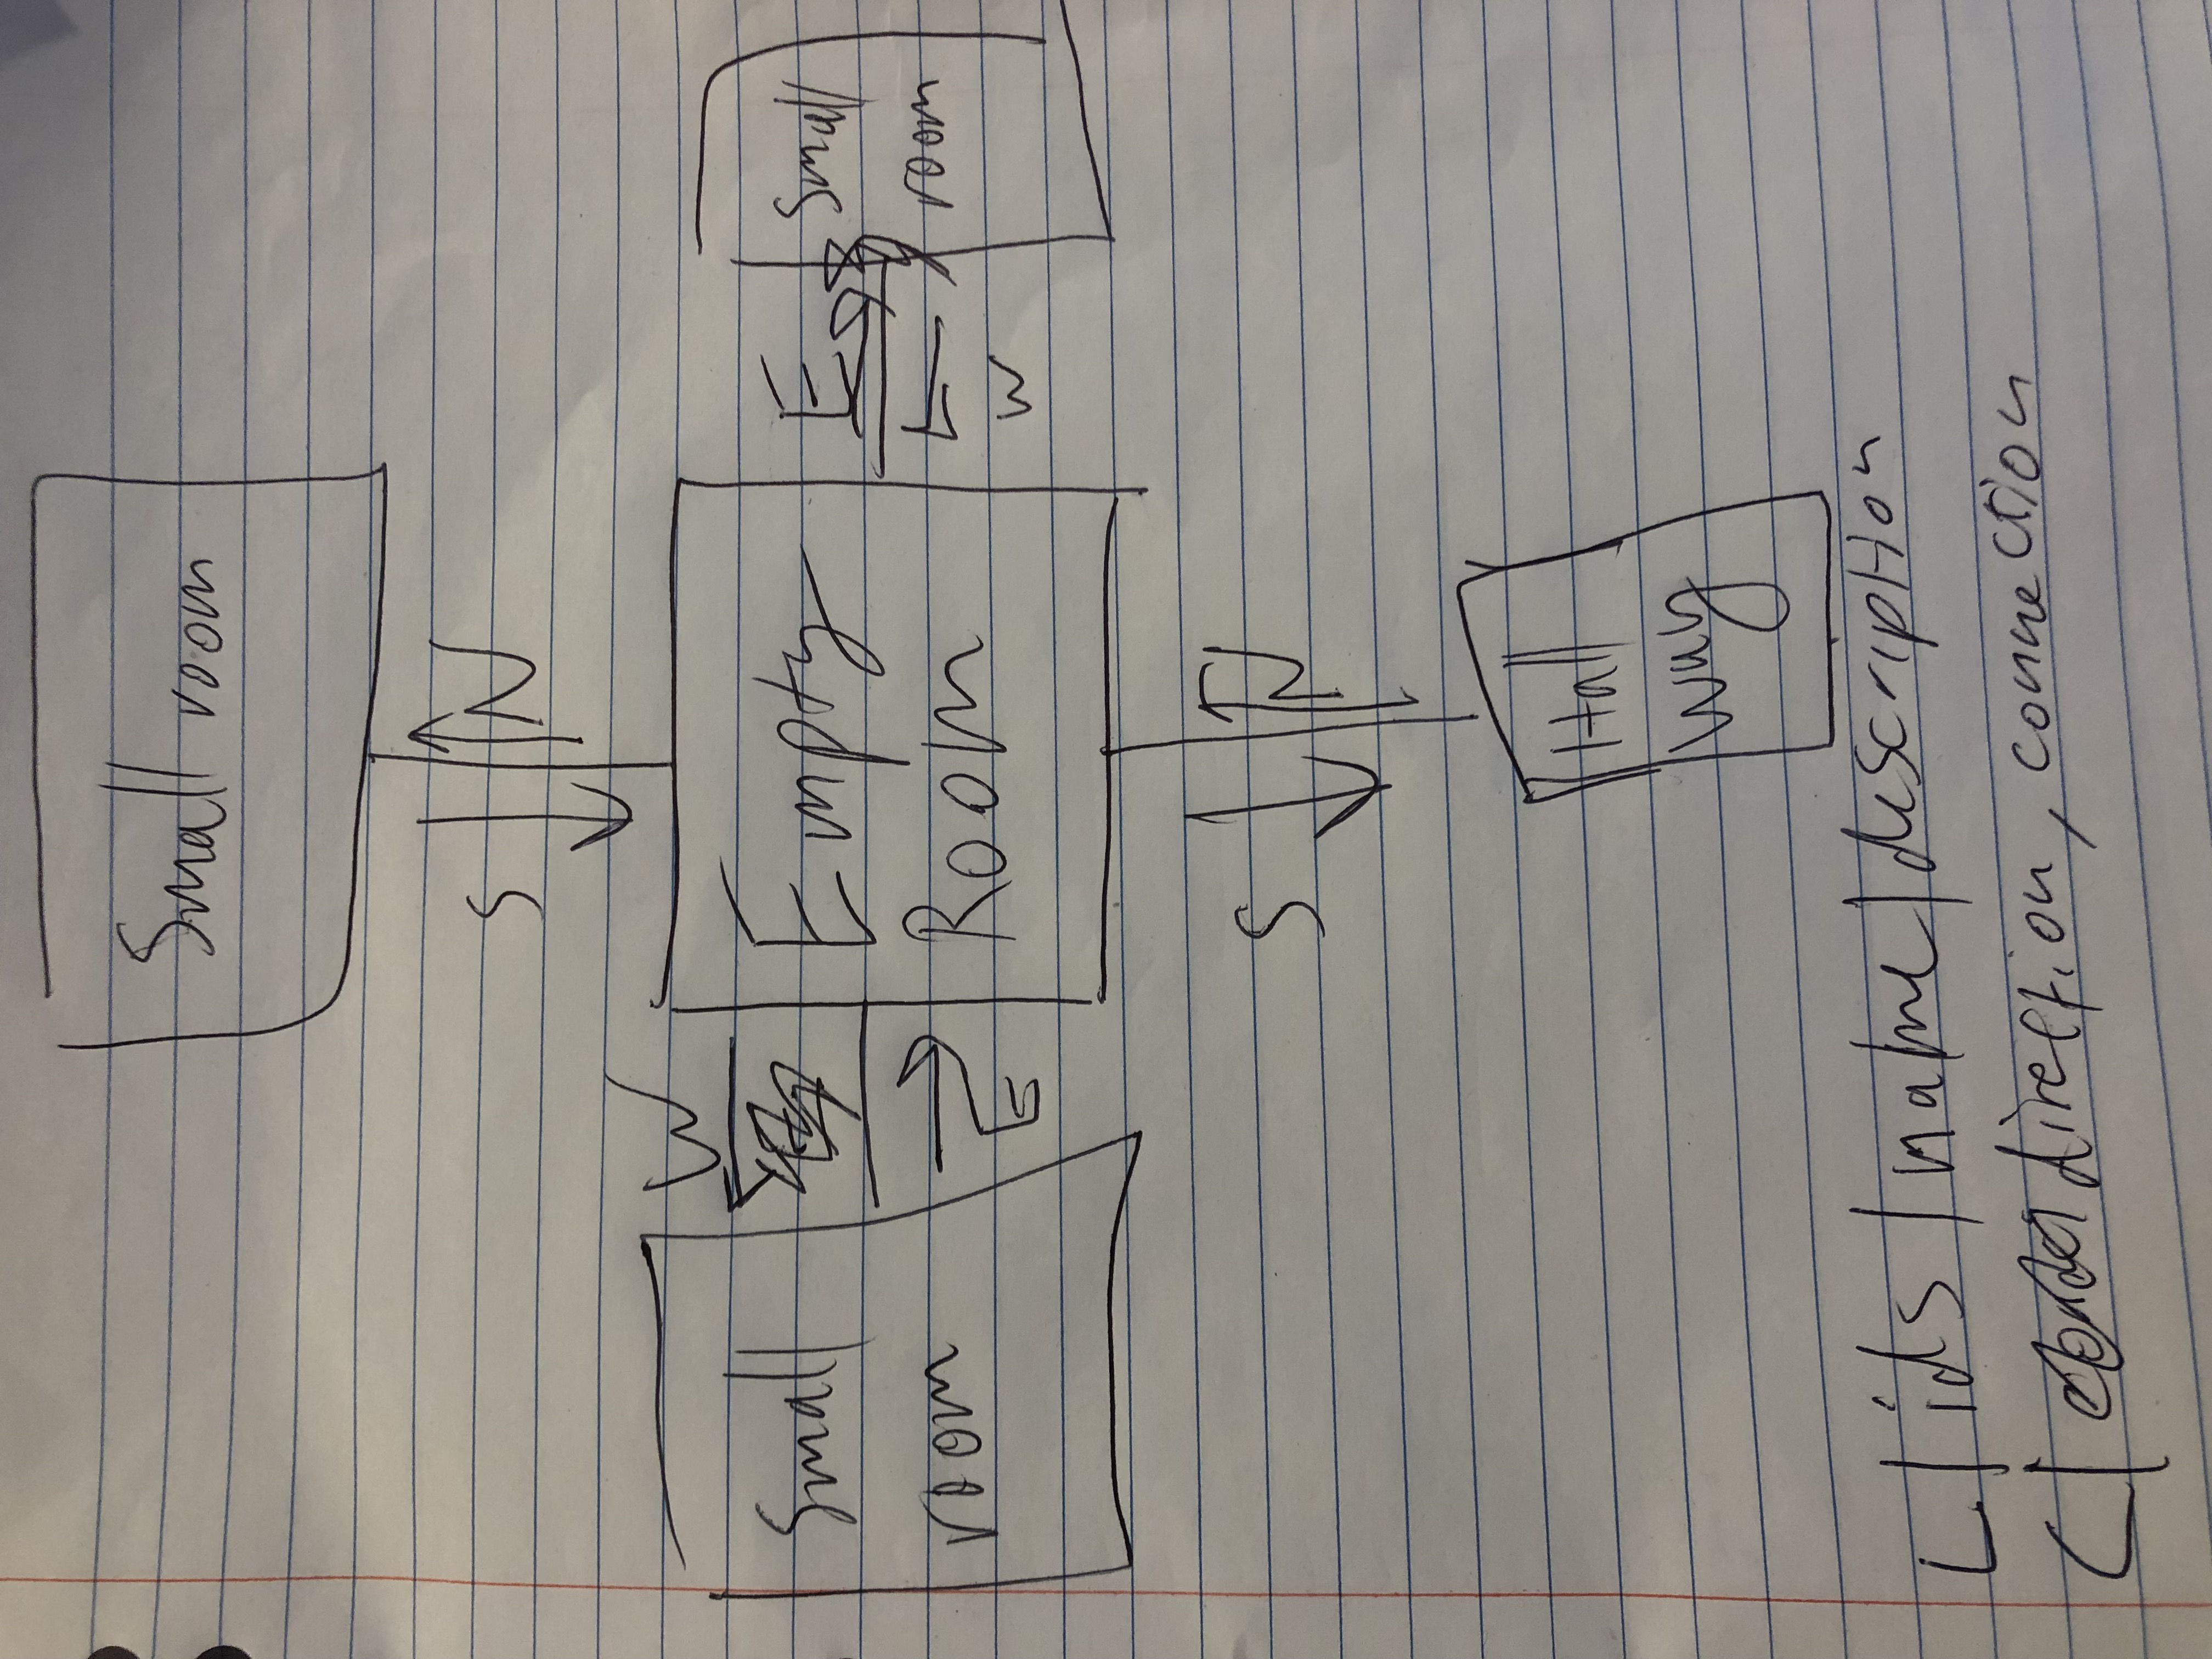 Small room
S
N
W
Small
room
E
Empty
Room
E
W
Small
room
S
N
Hall
way
L/ids/name/description
C/ direction, connection